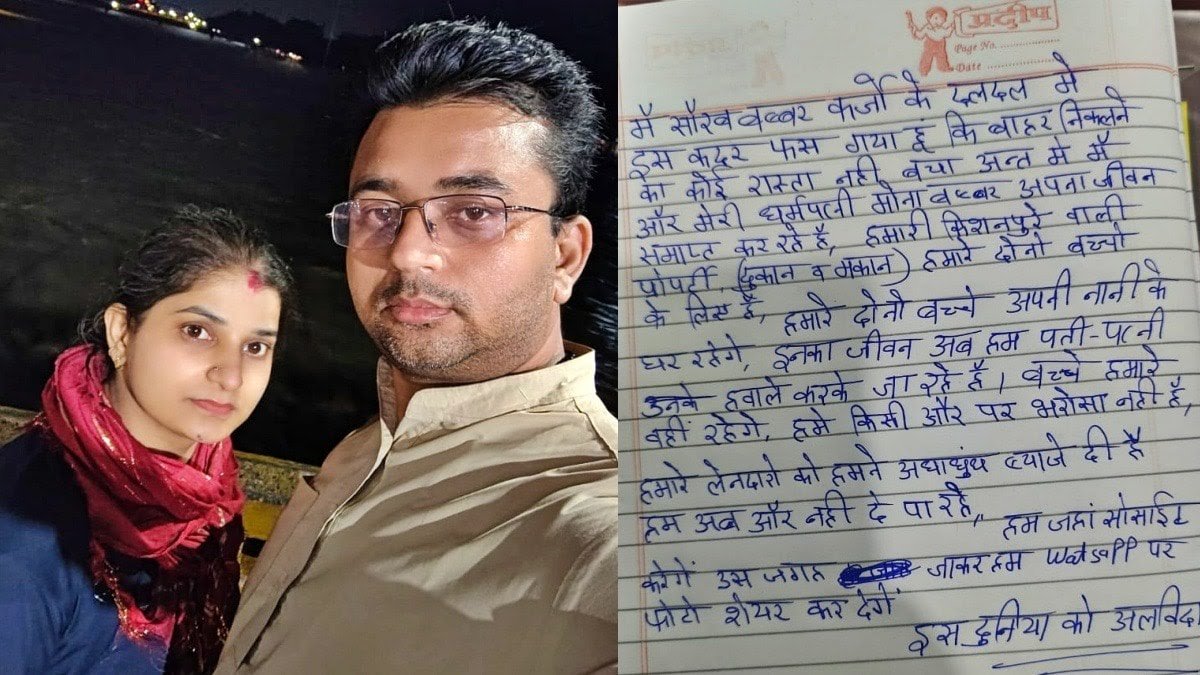 प्रदीप
Page No.
Date
मै सौरव बब्बर कर्जो के दलदल मे
इस कदर फस गया हूं कि बाहर निकलने
का कोई रास्ता नही बचा अन्त मे मैं
और मेरी धर्मपत्नी मोना बब्बर अपना जीवन
समाप्त कर रहे है, हमारी किशनपुरे वाली
प्रोपर्टी, (दुकान व मकान) हमारे दोनो बच्चो
के लिए है, हमारे दोनो बच्चे अपनी नानी के
घर रहेगे, इनका जीवन अब हम पती-पत्नी
उनके हवाले करके जा रहे है। बच्चे हमारे
वहीं रहेगे, हमे किसी और पर भरोसा नही है,
हमारे लेनदारो को हमने अधाधुंध ब्याजे दी है
हम अब और नही दे पा रहे, हम जहां सोसाईट
करेगें उस जगह जाकर हम Watsapp पर
फोटो शेयर कर देगें
इस दुनिया को अलविदा